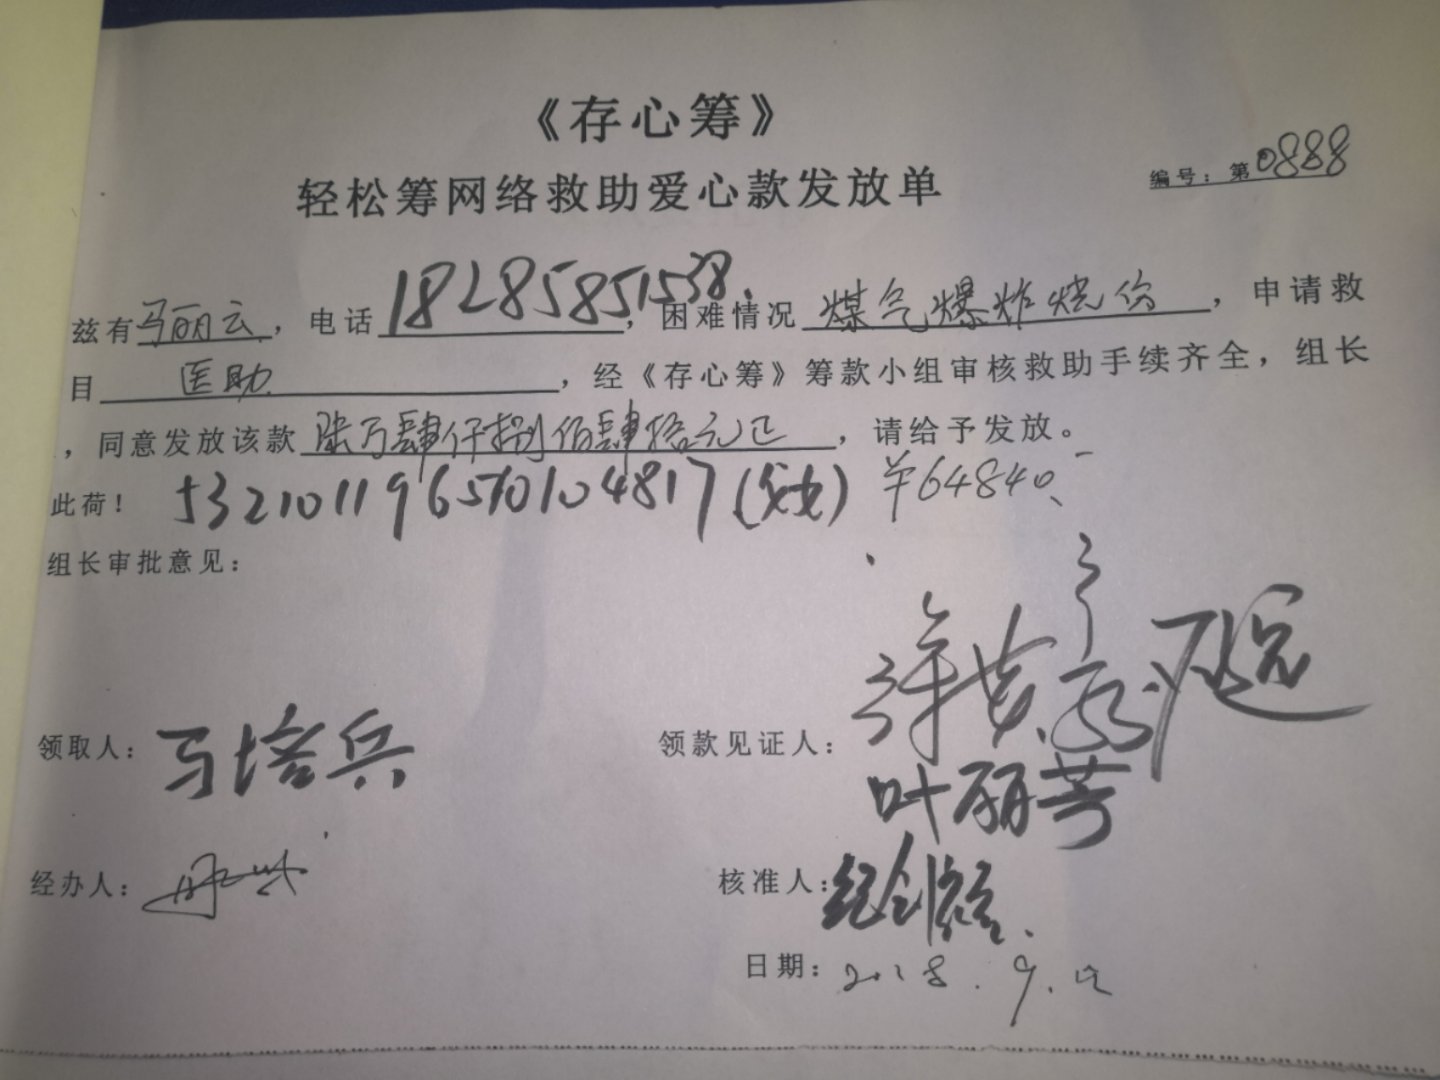 《存心筹》
轻松筹网络救助爱心款发放单
编号：第0888
兹有马丽云，电话18285851538，困难情况煤气爆炸烧伤，申请救
目医助，经《存心筹》筹款小组审核救助手续齐全，组长
，同意发放该款陆万肆仟捌佰肆拾元正，请给予发放。
此荷！532101196570104817 ¥64840
组长审批意见：
领取人：马培兵 领款见证人：
叶丽芳
经办人： 核准人：
日期：2018.9.12